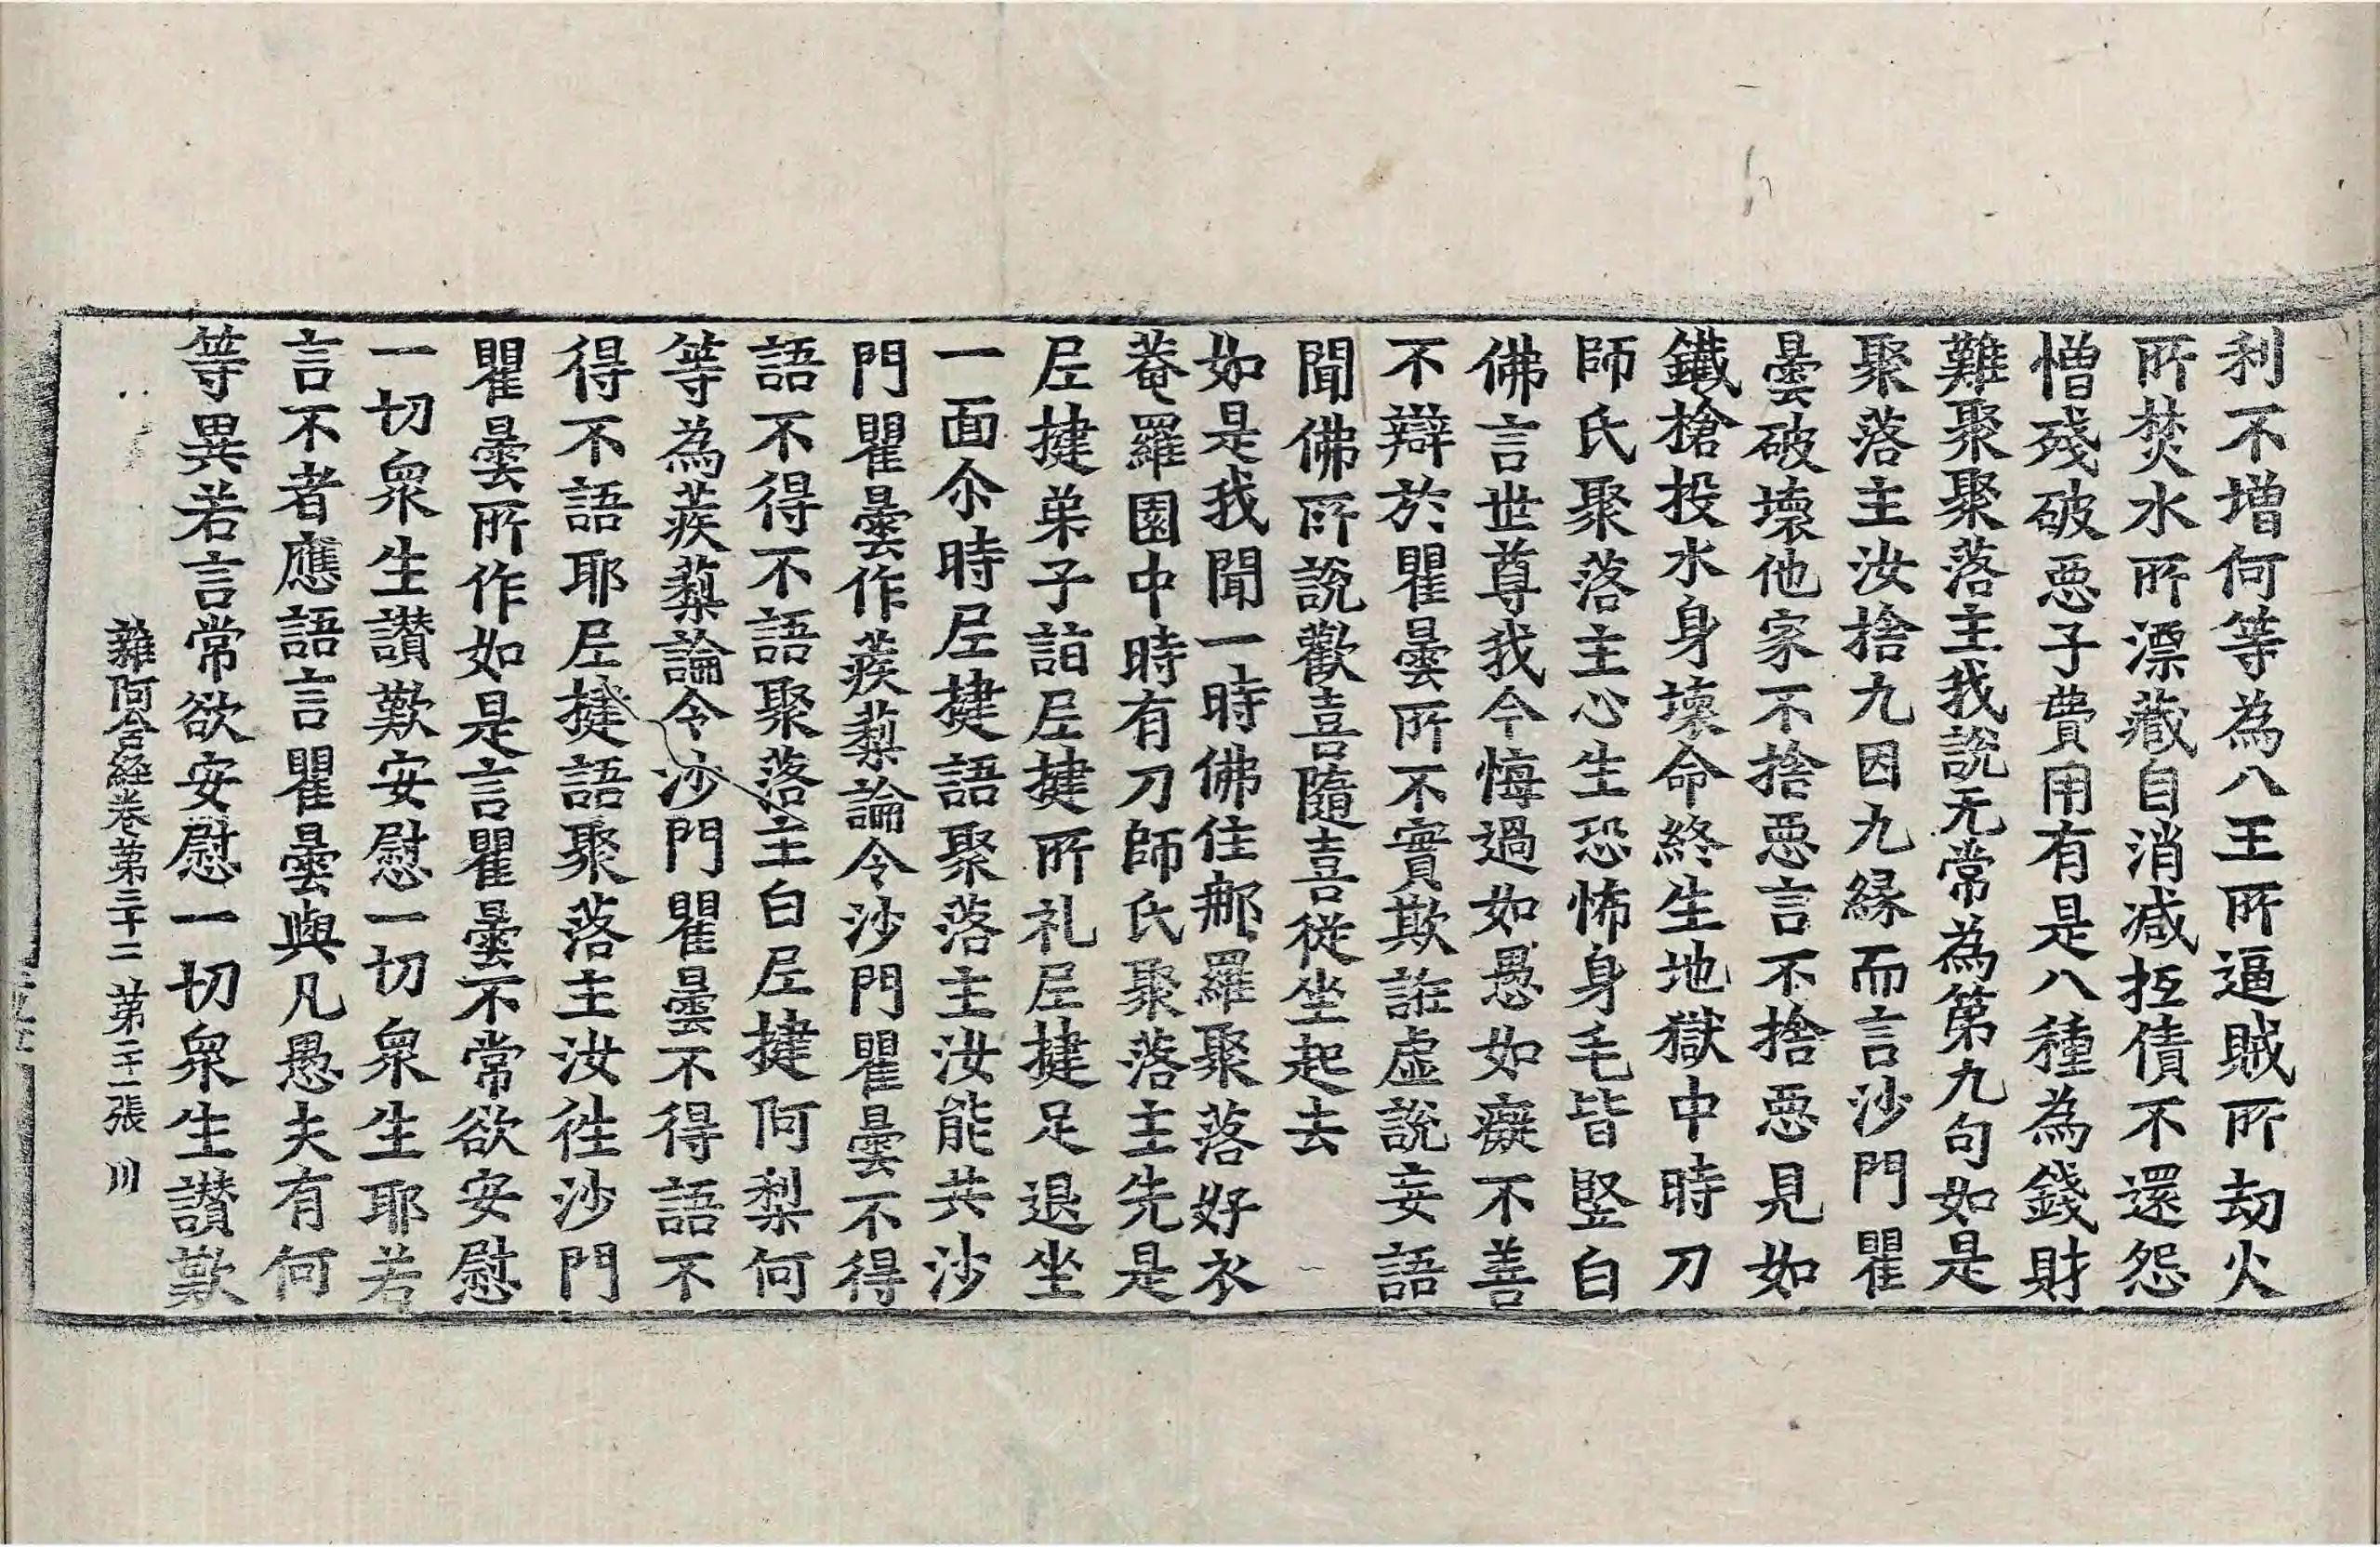 利不增何等為八王所逼賊所劫火
所焚水所漂藏自消减抂債不還怨
憎殘破惡子費用有是八種為錢財
難聚聚落主我說无常為第九句如是
聚落主汝捨九因九緣而言沙門瞿
曇破壞他家不捨惡言不捨惡見如
鐵槍投水身壞命終生地獄中時刀
師氏聚落主心生恐怖身毛皆竪白
佛言世尊我今悔過如愚如癡不善
不辯於瞿曇所不實欺誑虛說妄語
聞佛所說歡喜隨喜從坐起去
如是我聞一時佛住那羅聚落好衣
菴羅園中時有刀師氏聚落主先是
尼揵弟子詣尼揵所礼尼揵足退坐
一面尒時尼揵語聚落主汝能共沙
門瞿曇作蒺蔾論令沙門瞿曇不得
語不得不語聚落主白尼揵阿梨何
等為蒺蔾論令沙門瞿曇不得語不
得不語耶尼揵語聚落主汝徃沙門
瞿曇所作如是言瞿曇不常欲安慰
一切衆生讃歎安慰一切衆生耶若
言不者應語言瞿曇與凡愚夫有何
等異若言常欲安慰一切衆生讃歎
雜阿含経卷第三十二 第二十一張 川